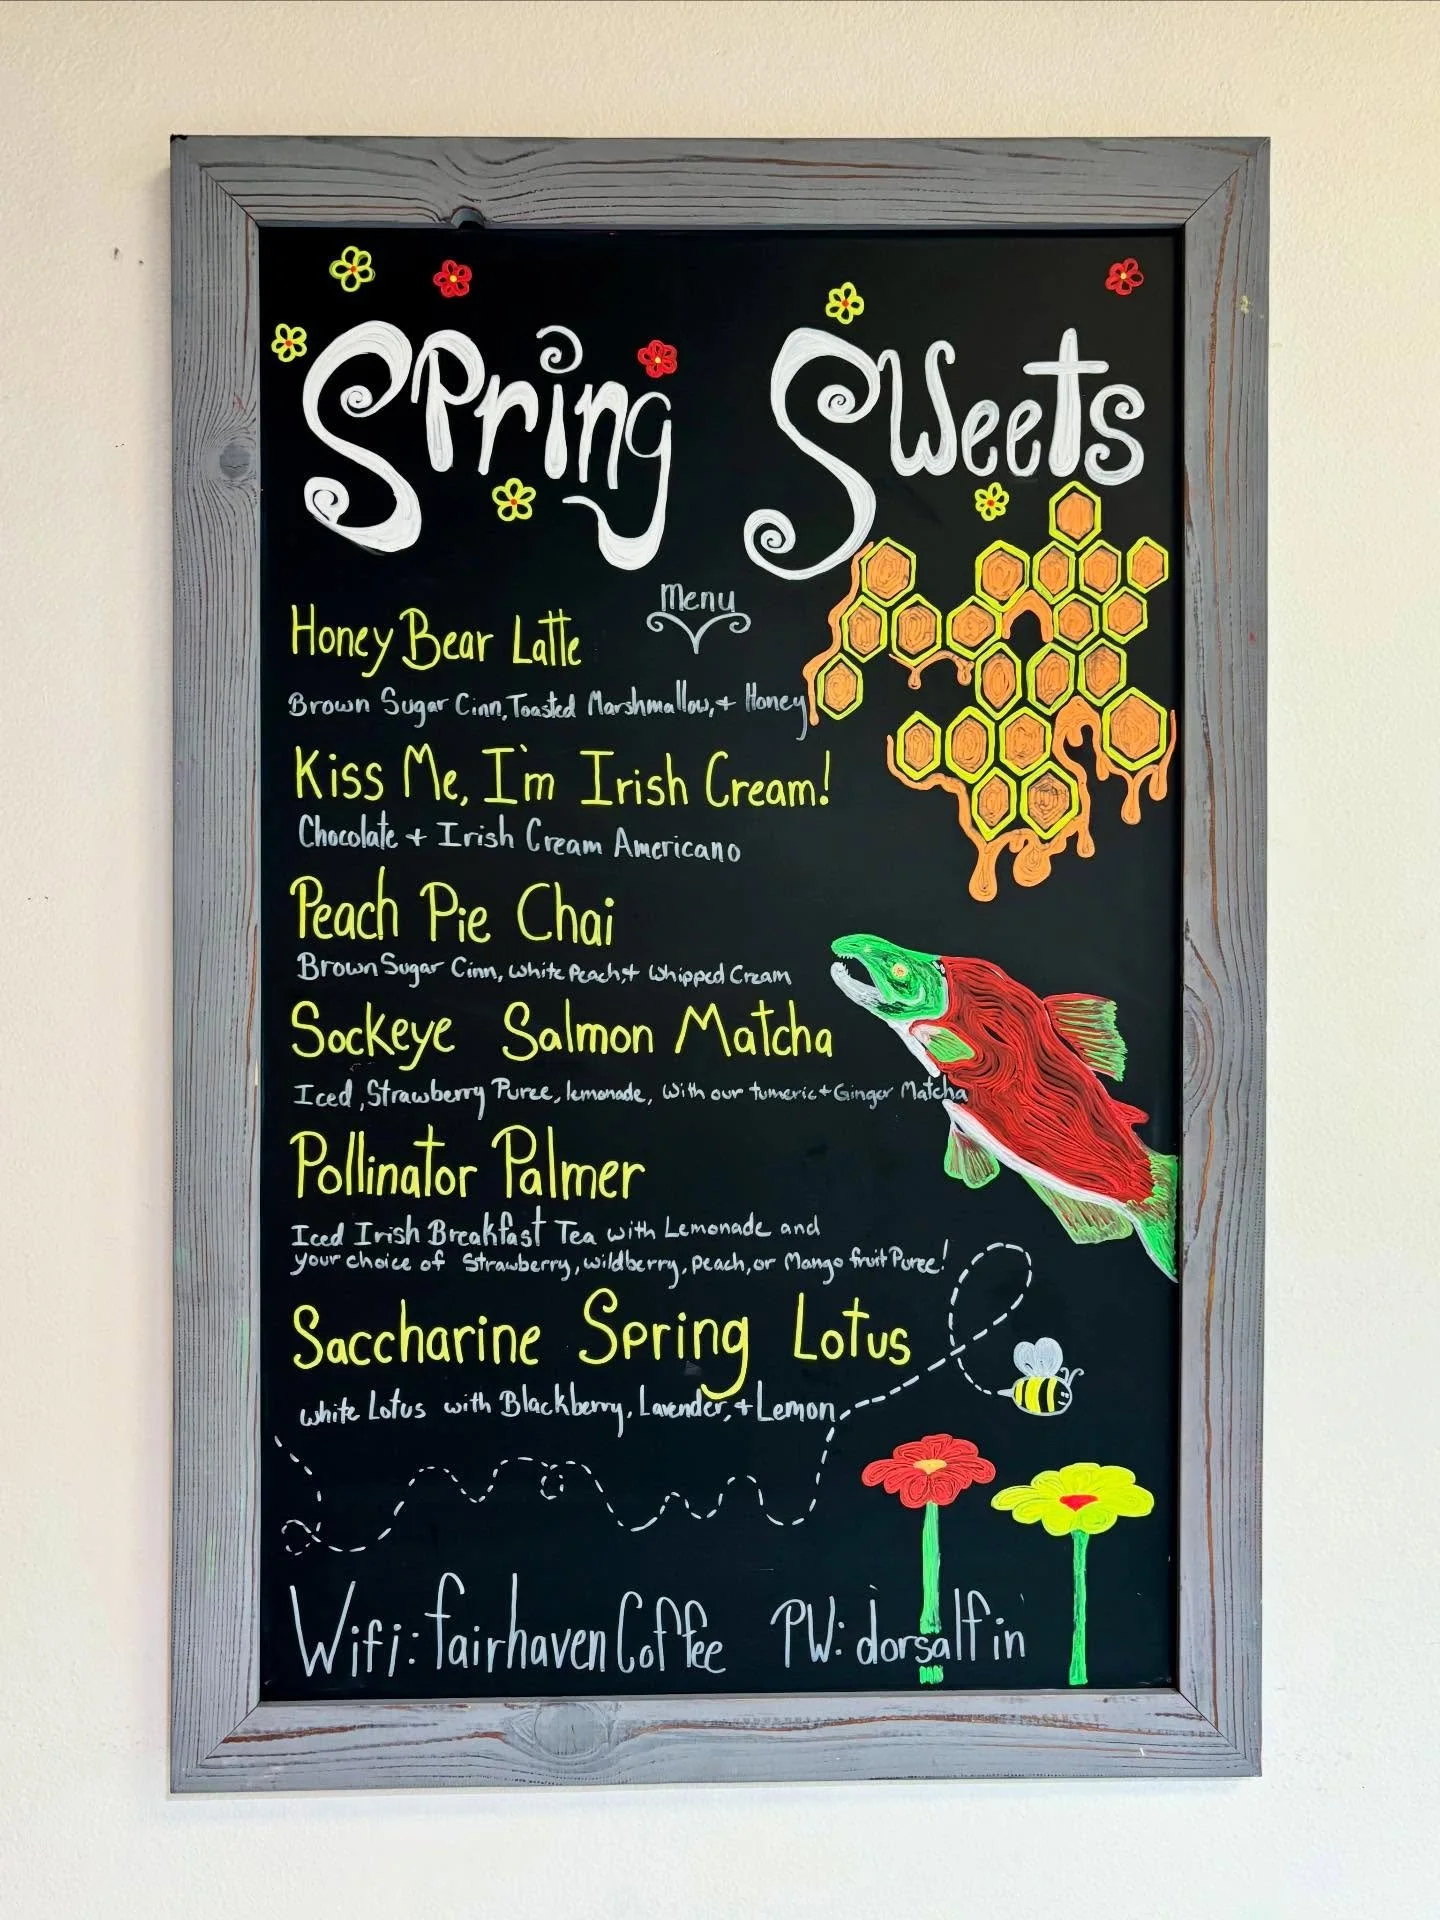 Spring Sweets
Menu
Honey Bear Latte
Brown Sugar Cinn, Toasted Marshmallow, + Honey
Kiss Me, I'm Irish Cream!
Chocolate + Irish Cream Americano
Peach Pie Chai
Brown Sugar Cinn, white Peach, + whipped Cream
Sockeye Salmon Matcha
Iced, Strawberry Puree, lemonade, with our tumeric + Ginger Matcha
Pollinator Palmer
Iced Irish Breakfast Tea with Lemonade and
your choice of Strawberry, wildberry, peach, or Mango fruit Puree!
Saccharine Spring Lotus
white Lotus with Blackberry, Lavender, + Lemon
Wifi: fairhaven Coffee PW: dorsalfin